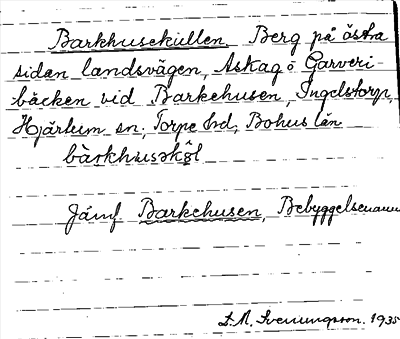 Barkhusekullen Berg på östra
sidan landsvägen, Askag o Garveri-
bäcken vid Barkehusen, Ingelstorp,
Hjärtum sn; Torpe hd, Bohus län
bàrkhusəkól
Jämf. Barkehusen, Bebyggelsenamn
D.A. Svenungsson. 1935